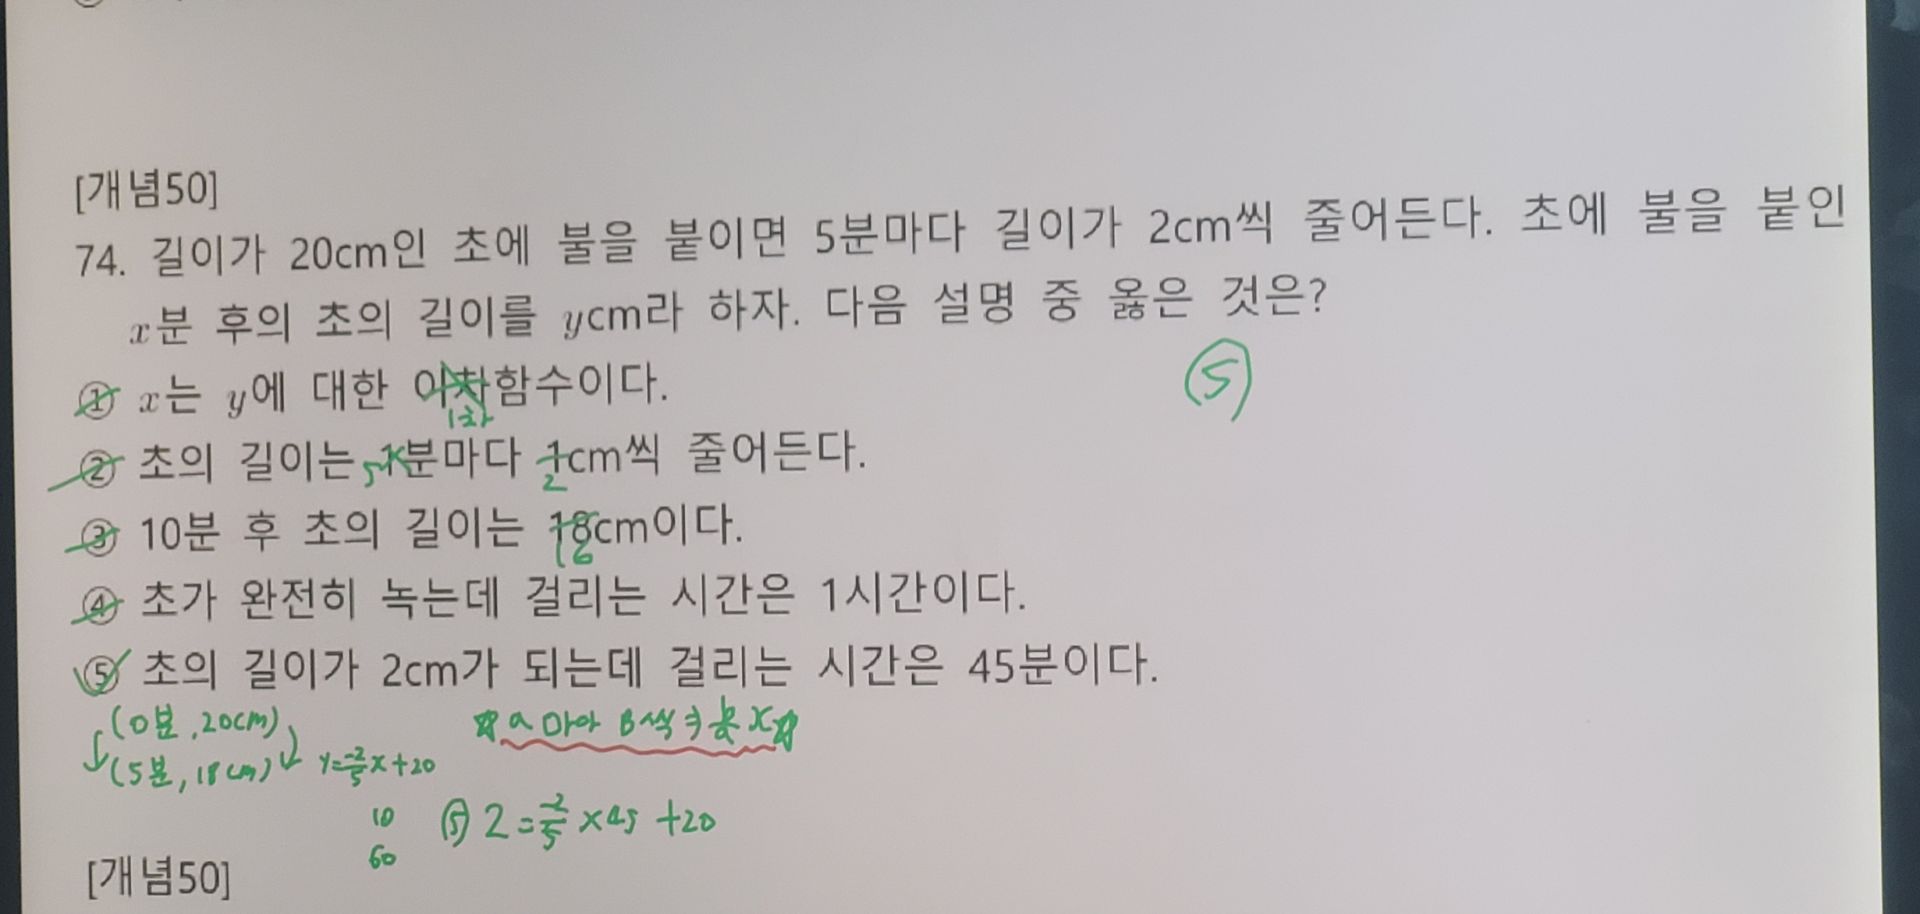 [개념50]
74. 길이가 20cm인 초에 불을 붙이면 5분마다 길이가 2cm씩 줄어든다. 초에 불을 붙인
x분 후의 초의 길이를 ycm라 하자. 다음 설명 중 옳은 것은?
⑤
① x는 y에 대한 이차함수이다.
1차
② 초의 길이는 1분마다 1cm씩 줄어든다.
5 2
③ 10분 후 초의 길이는 18cm이다.
16
④ 초가 완전히 녹는데 걸리는 시간은 1시간이다.
⑤ 초의 길이가 2cm가 되는데 걸리는 시간은 45분이다.
(0분, 20cm) ☆a마다 B씩
(5분, 18cm) y=-2/5x+20
10 ⑤ 2=-2/5×45+20
60
[개념50]